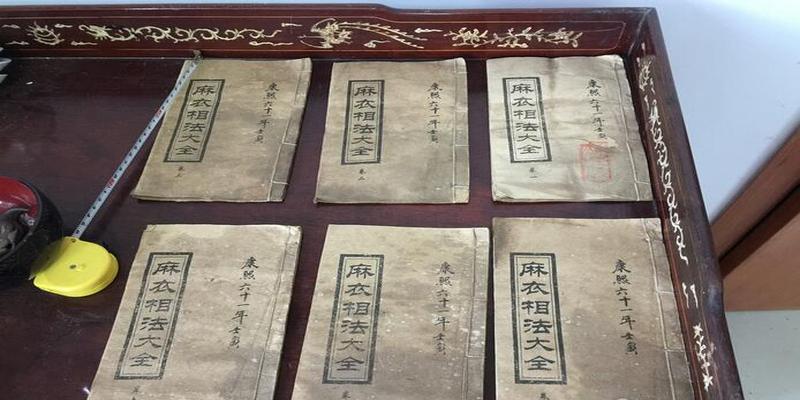 康熙六十一年壬寅
麻衣相法大全
卷三
康熙六十一年壬寅
麻衣相法大全
卷二
康熙六十一年壬寅
麻衣相法大全
卷一
康熙六十一年壬寅
麻衣相法大全
康熙六十一年壬寅
麻衣相法大全
康熙六十一年壬寅
麻衣相法大全